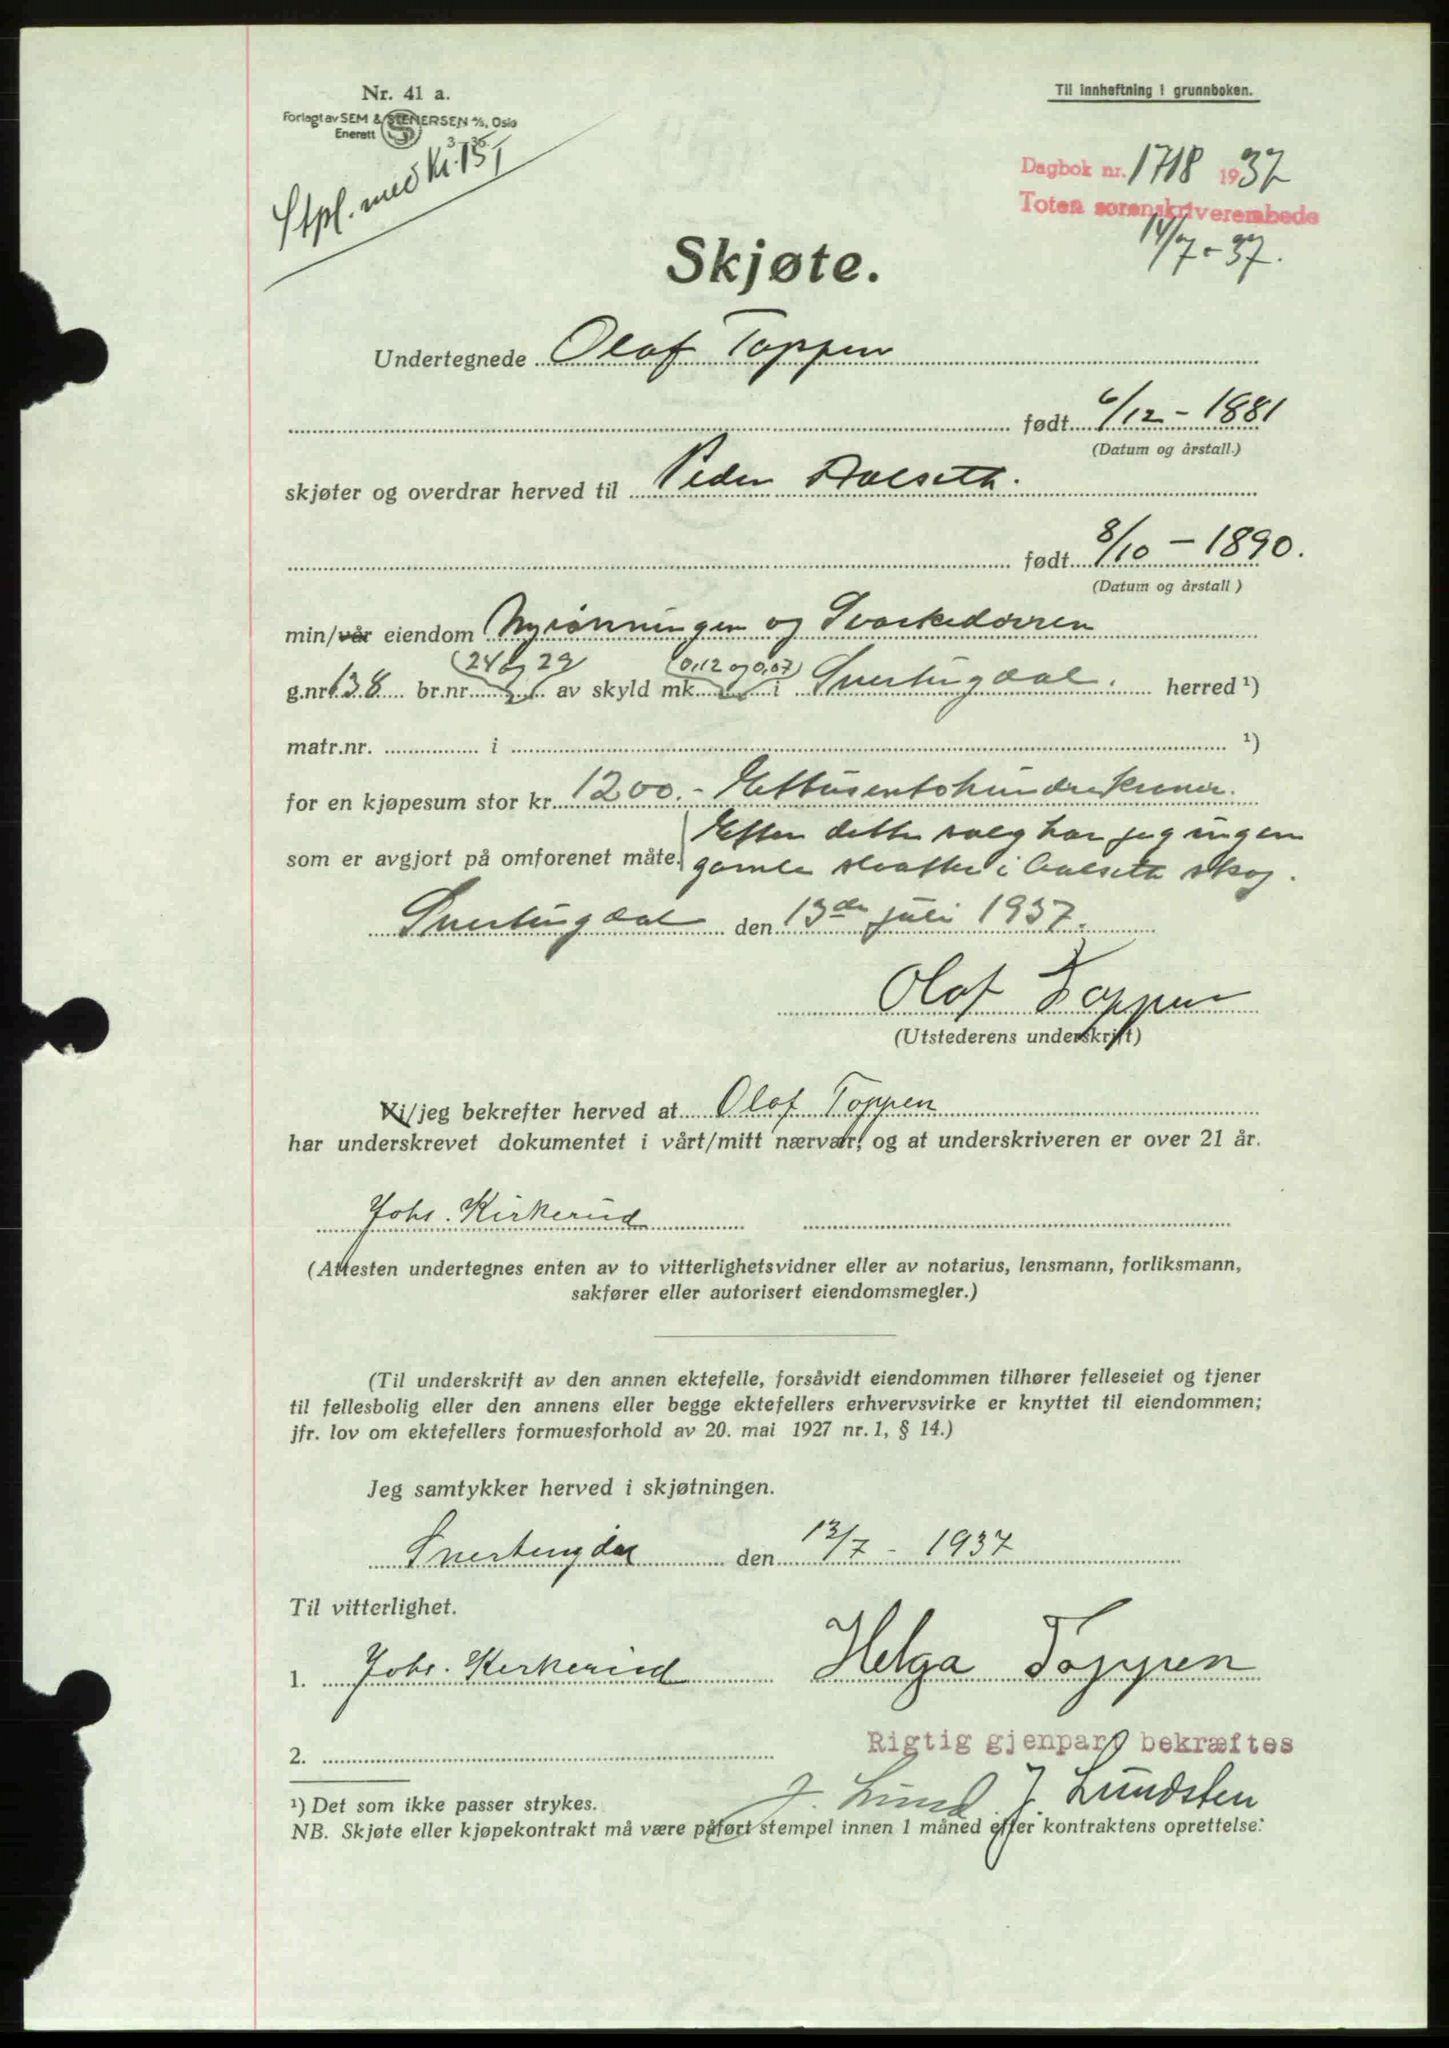 Nr. 41 a.
Forlagt av SEM & STENERSEN A/S, Oslo
Enerett
3 - 36.
Til innheftning i grunnboken.
Stpl. med kr. 15
Dagbok nr. 1718 1937
Toten sorenskriverembede
14/7 - 37.
Skjøte.
Undertegnede Olaf Toppen
født 6/12 - 1881
(Datum og årstall.)
skjøter og overdrar herved til Peder Aalseth.
født 8/10 - 1890.
(Datum og årstall)
min/vår eiendom Nyrönningen og
(24 og 29 (0,12 og 0,07)
g.nr. 138 br.nr. av skyld mk. i Snertingdal. herred ¹)
matr.nr. i ¹)
for en kjøpesum stor kr. 1200.- Ettusentohundrekroner.
Efter dette salg har jeg ingen
som er avgjort på omforenet måte. gamle i Aalseth skog.
Snertingdal den 13de juli 1937.
Olaf Toppen
(Utstederens underskrift)
Vi/jeg bekrefter herved at Olaf Toppen
har underskrevet dokumentet i vårt/mitt nærvær, og at underskriveren er over 21 år.
Johs. Kirkerud
(Attesten undertegnes enten av to vitterlighetsvidner eller av notarius, lensmann, forliksmann,
sakfører eller autorisert eiendomsmegler.)
(Til underskrift av den annen ektefelle, forsåvidt eiendommen tilhører felleseiet og tjener
til fellesbolig eller den annens eller begge ektefellers erhvervsvirke er knyttet til eiendommen;
jfr. lov om ektefellers formuesforhold av 20. mai 1927 nr. 1, § 14.)
Jeg samtykker herved i skjøtningen.
Snertingdal den 13/7 - 1937
Til vitterlighet.
1. Johs. Kirkerud Helga Toppen
2.
Rigtig gjenpart bekræftes
J. Lund. J. Lundsten
¹) Det som ikke passer strykes.
NB. Skjøte eller kjøpekontrakt må være påført stempel innen 1 måned efter kontraktens oprettelse.